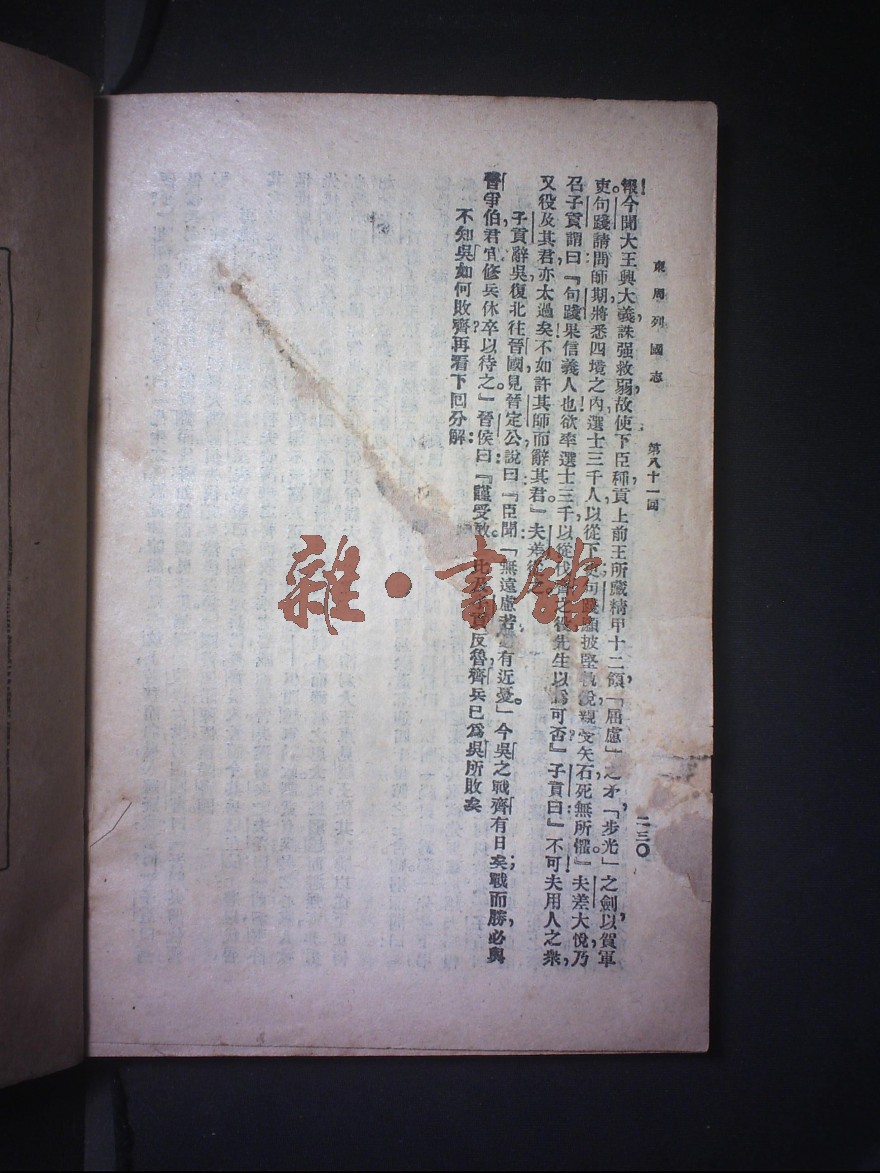 東周列國志 第八十一回 二三〇
報!今聞大王興大義,誅强救弱,故使下臣種,貢上前王所藏精甲十二領,「屈盧」之矛,「步光」之劍,以賀軍
吏。句踐請問師期,將悉四境之內,選士三千人,以從下吏;句踐願披堅執銳,親受矢石,死無所懼。』夫差大悅,乃
召子貢謂曰:『句踐果信義人也!欲率選士三千,以從伐齊之役,先生以爲可否?』子貢曰:『不可!夫用人之衆,
又役及其君,亦太過矣!不如許其師而辭其君。』夫差從之。
子貢辭吳,復北往晉國,見晉定公,說曰:『臣聞「無遠慮者,必有近憂。」今吳之戰齊有日矣;戰而勝,必與
晉爭伯,君宜修兵休卒以待之。』晉侯曰:『謹受敎。』比及子貢反魯,齊兵已爲吳所敗矣
不知吳如何敗齊?再看下回分解:
雜·書館